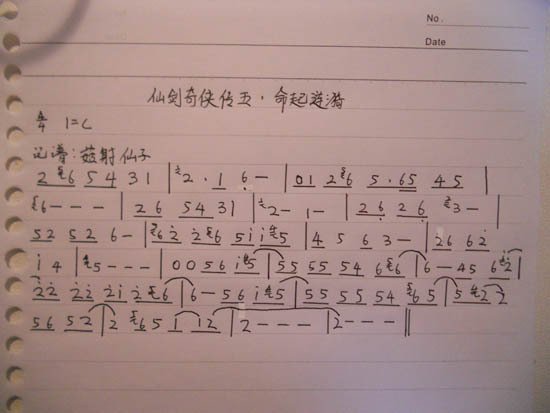 No.
Date
仙剑奇侠传五·命起涟漪
4/4 1=C
记谱:菇射仙子
2 6 5 4 3 1 | 2 · 1 6 - | 0 1 2 6 5 · 6 5 4 5 |
6 - - - | 2 6 5 4 3 1 | 2 - 1 - | 2 6 2 6 3 - |
5 2 5 2 6 - | 6 2 2 6 5 i i 5 | 4 5 6 3 - | 2 6 6 2
i 4 | 5 - - - | 0 0 5 6 i 5 | 5 5 5 5 5 4 6 6 | 6 - 4 5 6 2 |
2 2 2 2 2 i 2 6 | 6 - 5 6 i 5 | 5 5 5 5 5 4 6 5 | 5 2 2
5 6 5 2 | 2 6 5 1 1 2 | 2 - - - | 2 - - - ||